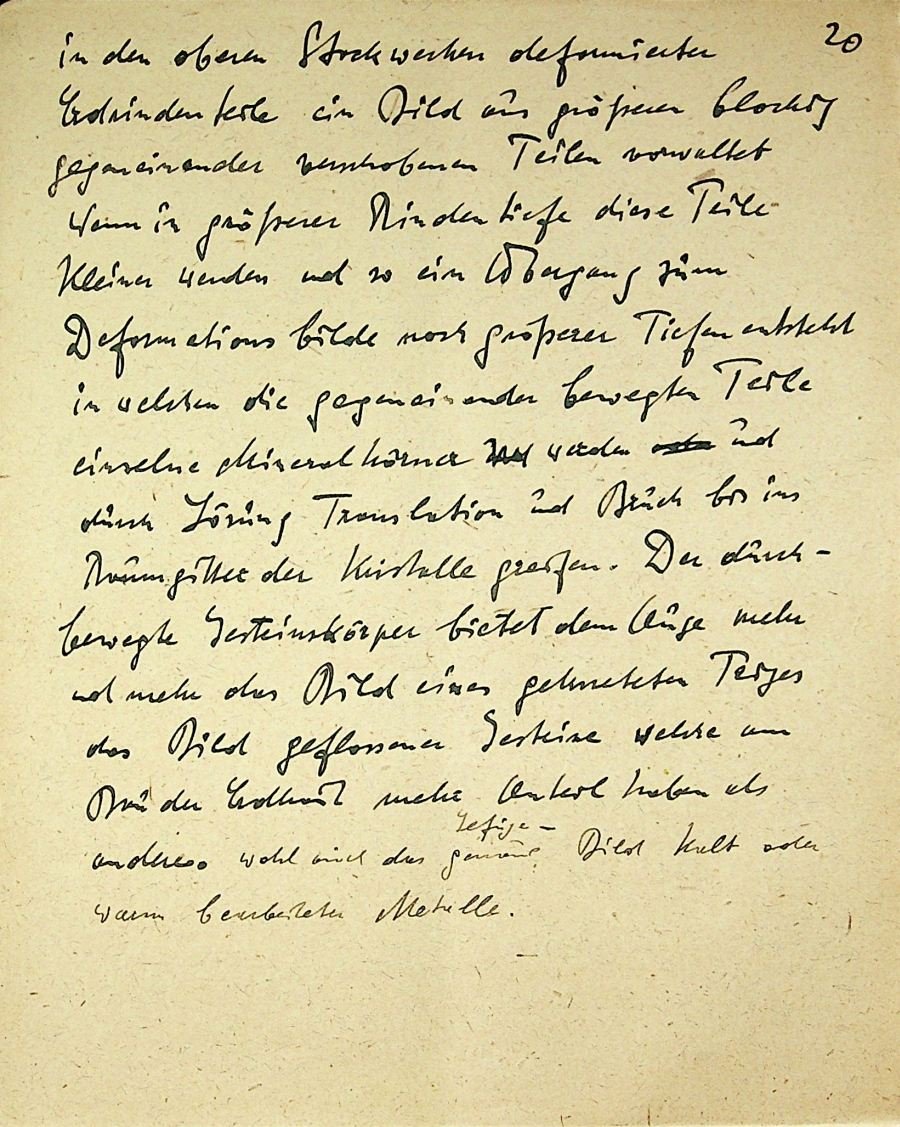 20
in den oberen Stockwerken deformierter
Erdrindenteile ein Bild aus grösserer blockig
gegeneinander verschobenen Teilen vorwaltet
Wenn in grösserer Rindentiefe diese Teile
kleiner werden und so ein Übergang zum
Deformationsbilde noch grösserer Tiefen entsteht
in welchen die gegeneinander bewegten Teile
einzelne Mineralkörner werden und
durch Lösung Translation und Bruch bis ins
Raumgitter der Kristalle greifen. Der durch-
bewegte Gesteinskörper bietet dem Auge mehr
und mehr das Bild eines gekneteten Teiges
das Bild geflossener Gesteine welche am
Bau der Erdhaut mehr Anteil haben als
Gefüge-
andere. wohl auch das Bild kalt oder
warm bearbeiteter Metalle.